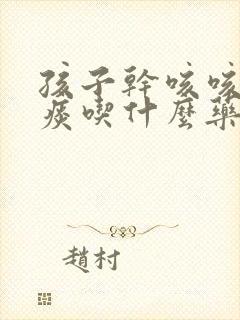 孩子幹咳咳
痰喫什麼藥
趙村